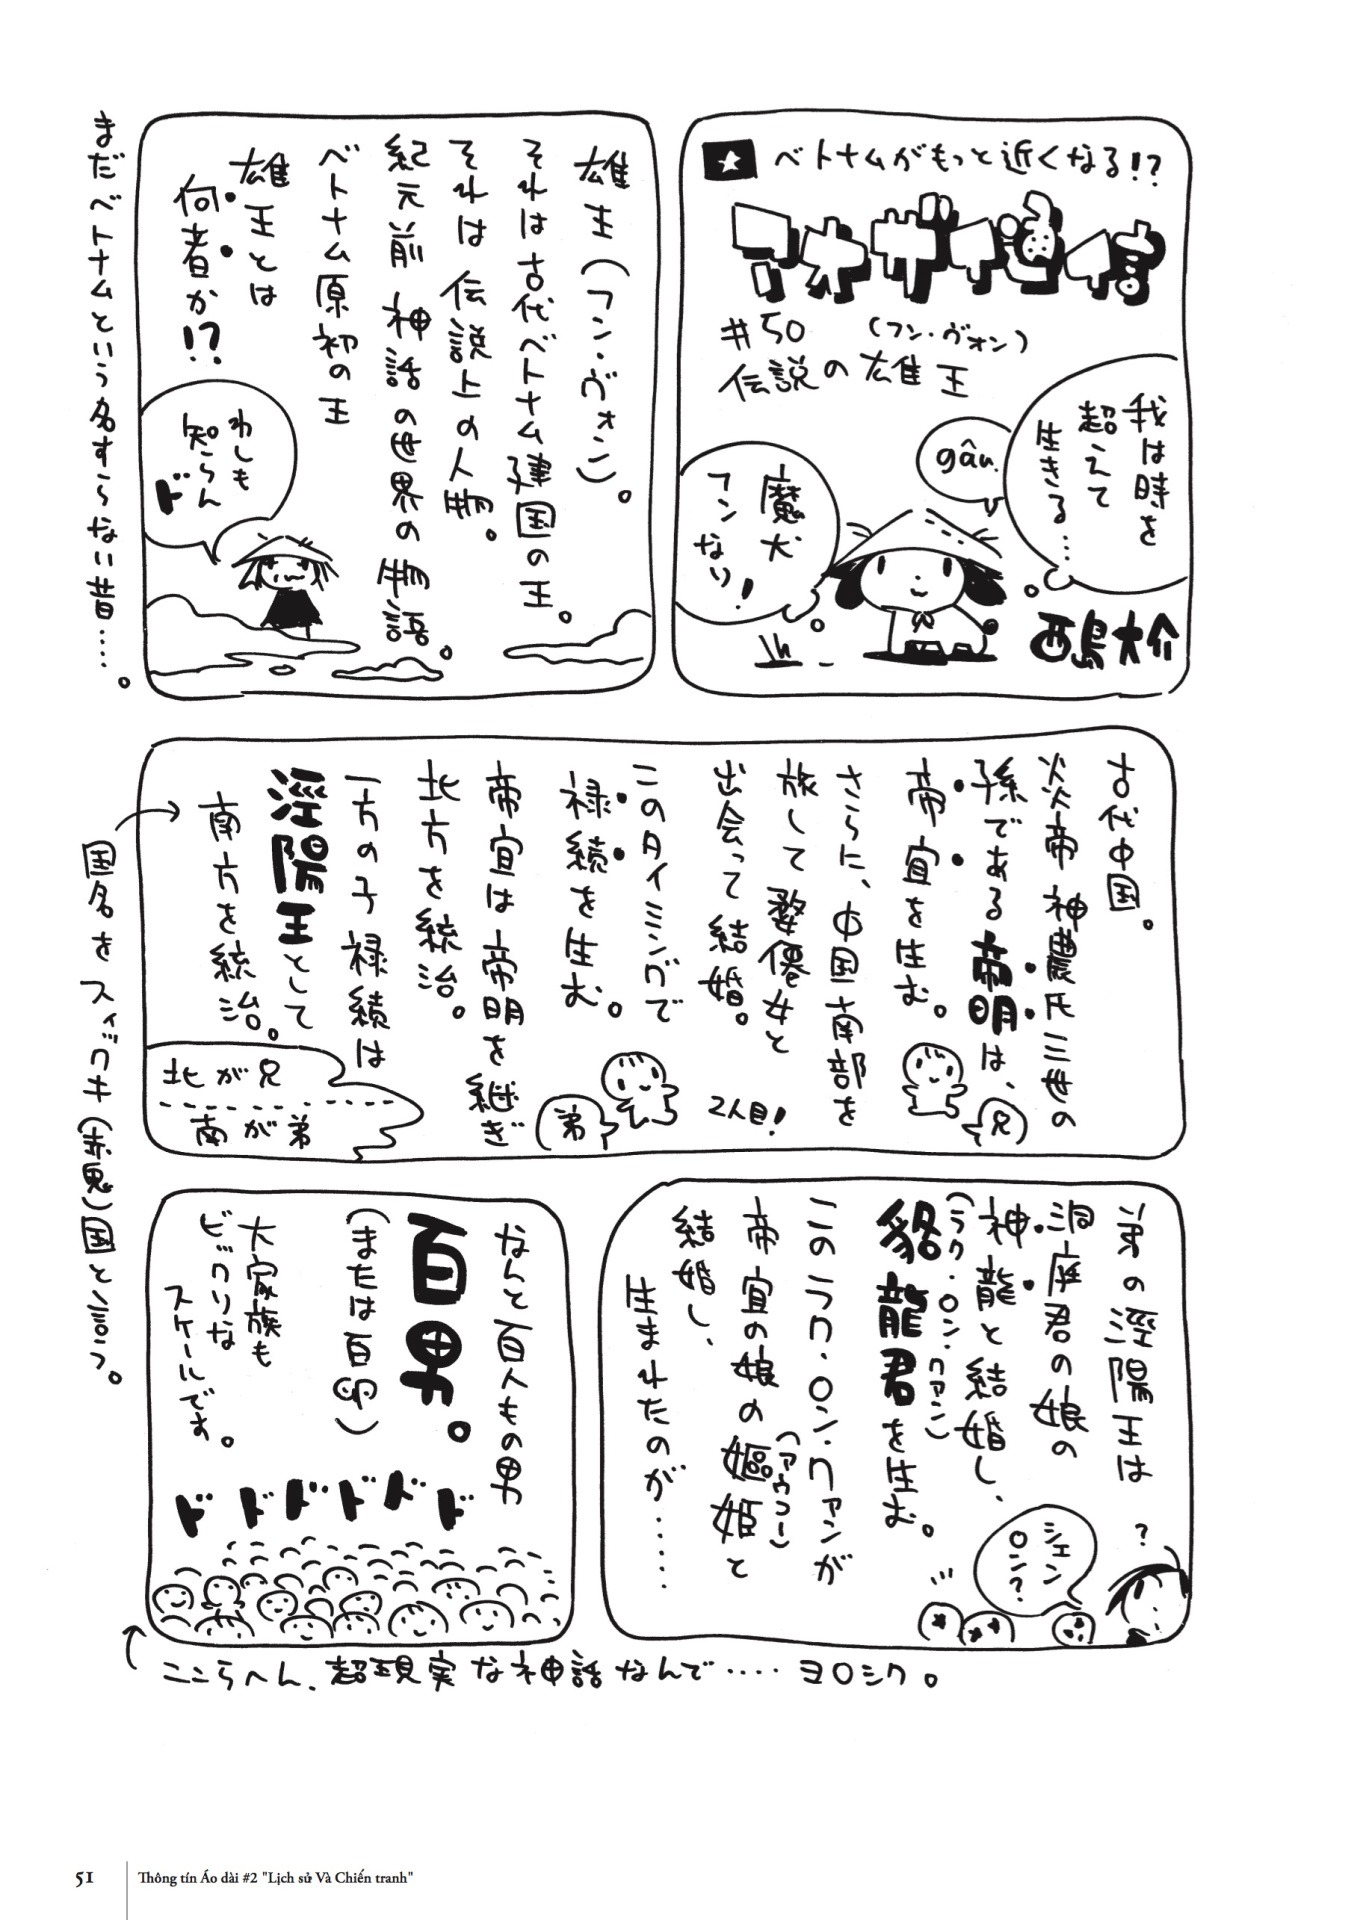 ベトナムがもっと近くなる!?
#50
(フン・ヴォン)
伝説の雄王
我は時を
超えて
生きる…
gâu.
魔犬
フンなり!
西島大介
雄王(フン・ヴォン)。
それは古代ベトナム建国の王。
それは伝説上の人物。
紀元前神話の世界の物語。
ベトナム原初の王
雄王とは
何者か!?
わしも
知らん
ド
まだベトナムという名すらない昔……。
古代中国。
炎帝神農氏三世の
孫である帝明は、
帝宜を生む。
兄
さらに、中国南部を
旅して婺僊女と
出会って結婚。
2人目!
このタイミングで
禄続を生む。
弟
帝宜は帝明を継ぎ
北方を統治。
一方の子禄続は
涇陽王として
南方を統治。
北が兄
南が弟
国名をスィックキ(赤鬼)国と言う。
弟の涇陽王は
洞庭君の娘の
神龍と結婚し、
(ラク・ロン・クァン)
貉龍君を生む。
?
シェン
ロン?
このラク・ロン・クァンが
帝宜の娘の嫗姫と
(アウコー)
結婚し、
生まれたのが……
なんと百人もの男
百男。
(または百卵)
大家族も
ビックリな
スケールです。
ドドドドドド
ここらへん、超現実な神話なんで…‥ヨロシク。
51
Thông tín Áo dài #2 "Lịch sử Và Chiến tranh"